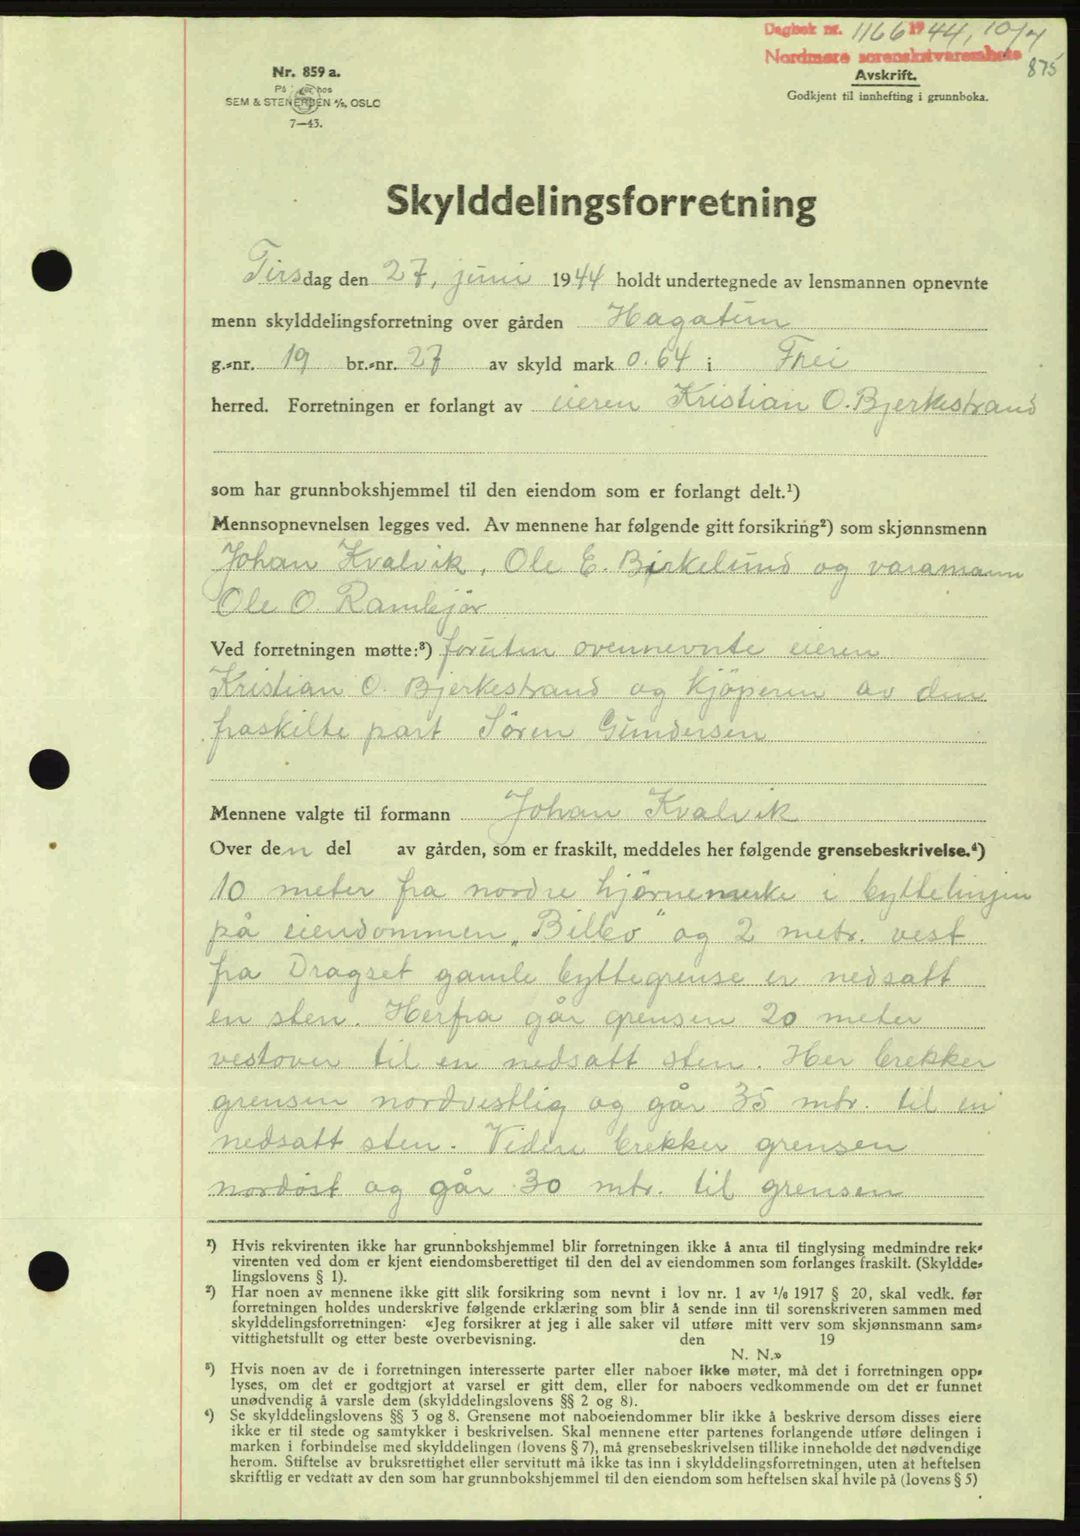 Dagbok nr. 1166 1944, 10/7
Nordmøre sorenskriverembete
875
Avskrift.
Godkjent til innhefting i grunnboka.
Nr. 859 a.
På lager hos
SEM & STENERSEN A/S, OSLO
7—43.
Skylddelingsforretning
Tirsdag den 27, juni 1944 holdt undertegnede av lensmannen opnevnte
menn skylddelingsforretning over gården Hagatun
g.-nr. 19 br.-nr. 27 av skyld mark 0.64 i Frei
herred. Forretningen er forlangt av eieren Kristian O. Bjerkestrand
som har grunnbokshjemmel til den eiendom som er forlangt delt.¹)
Mennsopnevnelsen legges ved. Av mennene har følgende gitt forsikring²) som skjønnsmenn
Johan Kvalvik, Ole E. Birkelund og varamann
Ole O. Rambjør
Ved forretningen møtte:³) foruten ovennevnte eieren
Kristian O. Bjerkestrand og kjöperen av den
fraskilte part Sören Gundersen
Mennene valgte til formann Johan Kvalvik
Over den del av gården, som er fraskilt, meddeles her følgende grensebeskrivelse.⁴)
10 meter fra nordre hjörnemerke i byttelinjen
på eiendommen „Bilbo" og 2 metr. vest
fra Dragset gamle byttegrense er nedsatt
en sten. Herfra går grensen 20 meter
vestover til en nedsatt sten. Her brekker
grensen nordvestlig og går 35 mtr. til en
nedsatt sten. Videre brekker grensen
nordöst og går 30 mtr. til grensen
¹) Hvis rekvirenten ikke har grunnbokshjemmel blir forretningen ikke å anta til tinglysing medmindre rek-
virenten ved dom er kjent eiendomsberettiget til den del av eiendommen som forlanges fraskilt. (Skyldde-
lingslovens § 1).
²) Har noen av mennene ikke gitt slik forsikring som nevnt i lov nr. 1 av 1/6 1917 § 20, skal vedk. før
forretningen holdes underskrive følgende erklæring som blir å sende inn til sorenskriveren sammen med
skylddelingsforretningen: «Jeg forsikrer at jeg i alle saker vil utføre mitt verv som skjønnsmann sam-
vittighetsfullt og etter beste overbevisning. den 19
N. N.»
³) Hvis noen av de i forretningen interesserte parter eller naboer ikke møter, må det i forretningen opp-
lyses, om det er godtgjort at varsel er gitt dem, eller for naboers vedkommende om det er funnet
unødvendig å varsle dem (skylddelingslovens §§ 2 og 8).
⁴) Se skylddelingslovens §§ 3 og 8. Grensene mot naboeiendommer blir ikke å beskrive dersom disses eiere
ikke er til stede og samtykker i beskrivelsen. Skal mennene etter partenes forlangende utføre delingen i
marken i forbindelse med skylddelingen (lovens § 7), må grensebeskrivelsen tillike inneholde det nødvendige
herom. Stiftelse av bruksrettighet eller servitutt må ikke tas inn i skylddelingsforretningen, uten at heftelsen
skriftlig er vedtatt av den som har grunnbokshjemmel til den eiendom som heftelsen skal hvile på (lovens § 5)